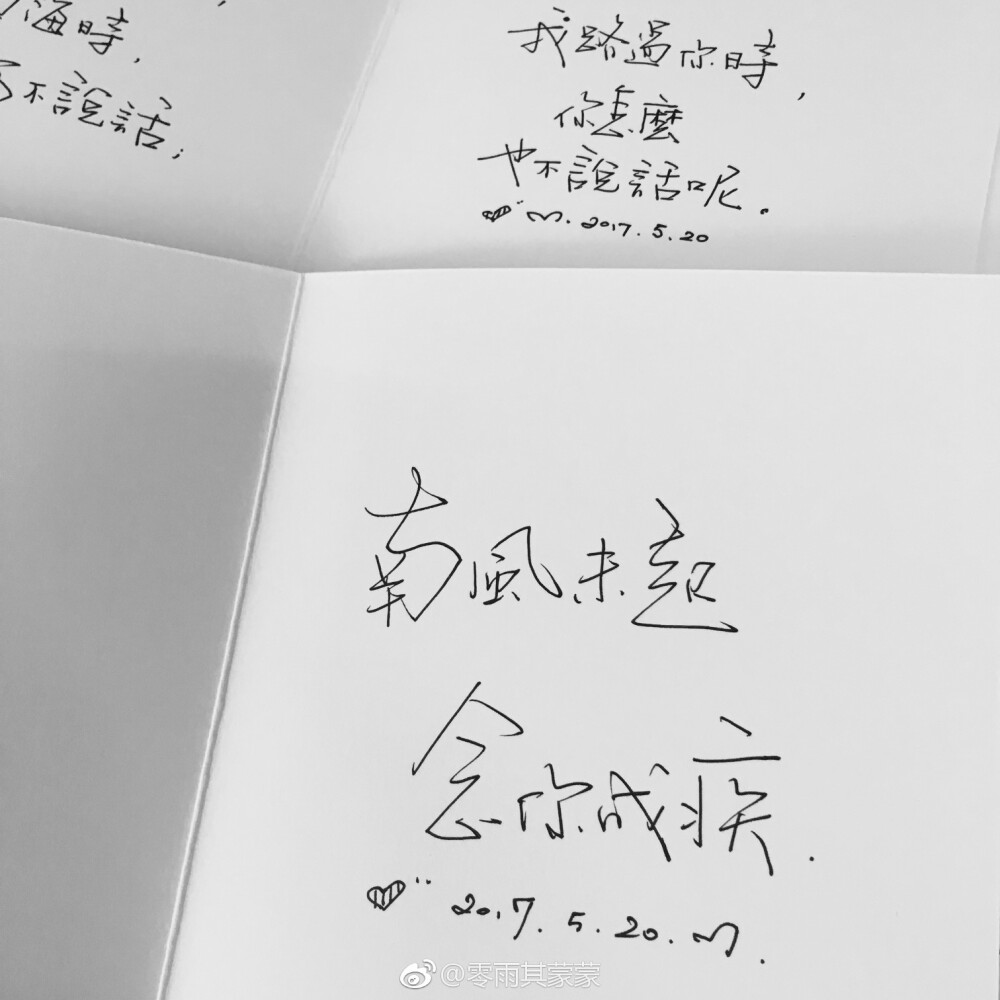 海時,
不說話;
我路過你時,
你怎麼
也不說話呢.
m. 2017.5.20
南風未起
念你成疾.
2017.5.20.m.
@零雨其蒙蒙